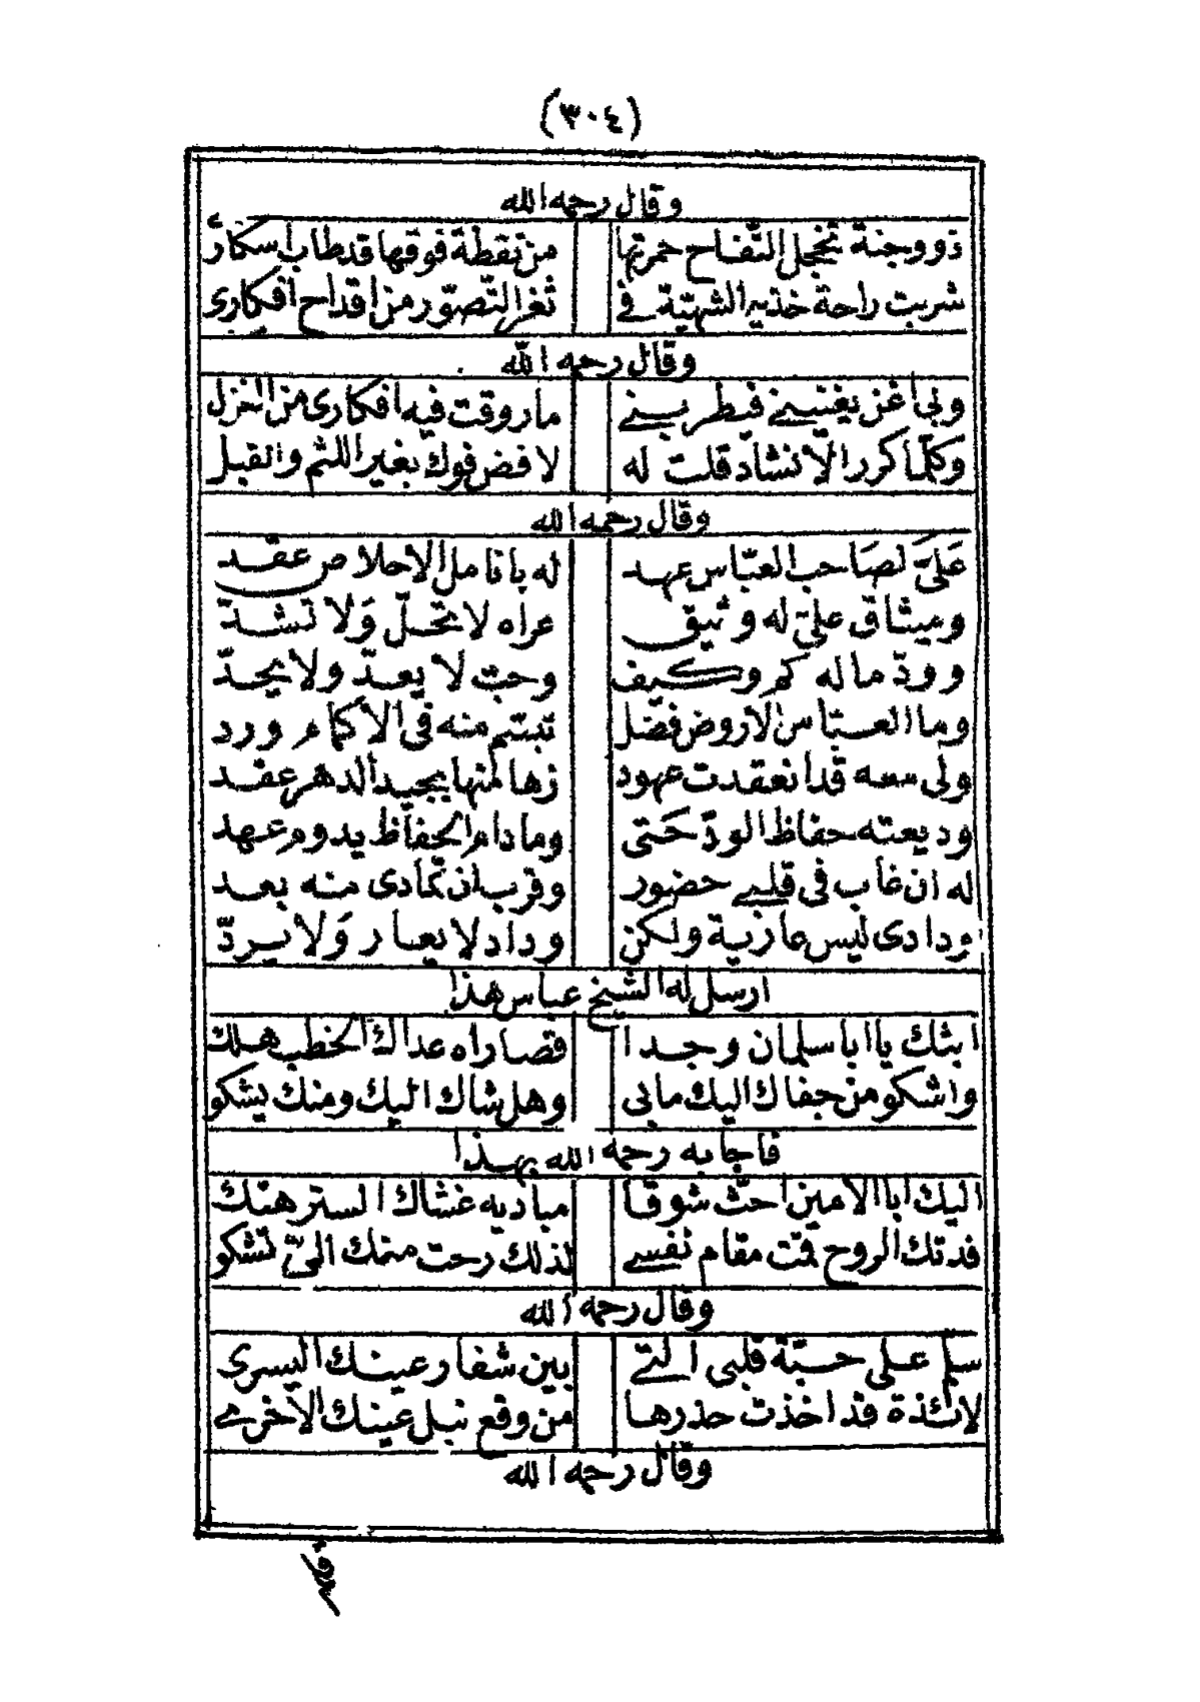 (٣٠٤)
وقال رحمه الله
ذو وجنة تخجل التّفاح حمرتها من نقطة فوقها قد طاب اسكارى
شربت راحة خدّيه الشهيّة في ثغر التّصوّر من اقداح افكارى
وقال رحمه الله
ولي اغن يغنيني فيطربني ما روقت فيه افكارى من الغزل
وكلّما كرر الأنشاد قلت له لا فض فوك بغير اللثم والقبل
وقال رحمه الله
عَلَيّ لصَاحب العبّاس عهد له بانامل الاخلاص عقد
وميثاق عليّ له وثيق عراه لا تحلّ وَلا تشدّ
وودّ ماله كم وكيف وحب لا يعدّ ولا يحدّ
وما العبّاس الاروض فضل تبسّم منه في الأكمام ورد
ولى معه قد انعقدت عهود زها منها بجيد الدهر عقد
وديعته حفاظ الودّ حَتى وما دام الحفاظ يدوم عهد
له ان غاب في قلبي حضور وقرب ان تمادى منه بعد
ودادى ليس عارية ولكن وداد لا يعار وَلا يردّ
ارسل له الشيخ عباس هذا
ابثك يا ابا سلمان وجدا قصاراه عداك الخطب هلك
واشكو من جفاك اليك مابي وهل شاك اليك ومنك يشكو
فاجابه رحمه الله بهذا
اليك ابا الامين احثّ شوقا مباديه غشاك الستر هتك
فدتك الروح قمت مقام نفسي لذلك رحت منك اليّ تشكو
وقال رحمه الله
سلم على حبّة قلبى التي بين شفار عينك اليسرى
لائذة قد اخذت حذرها من وقع نبل عينك الأخرى
وقال رحمه الله